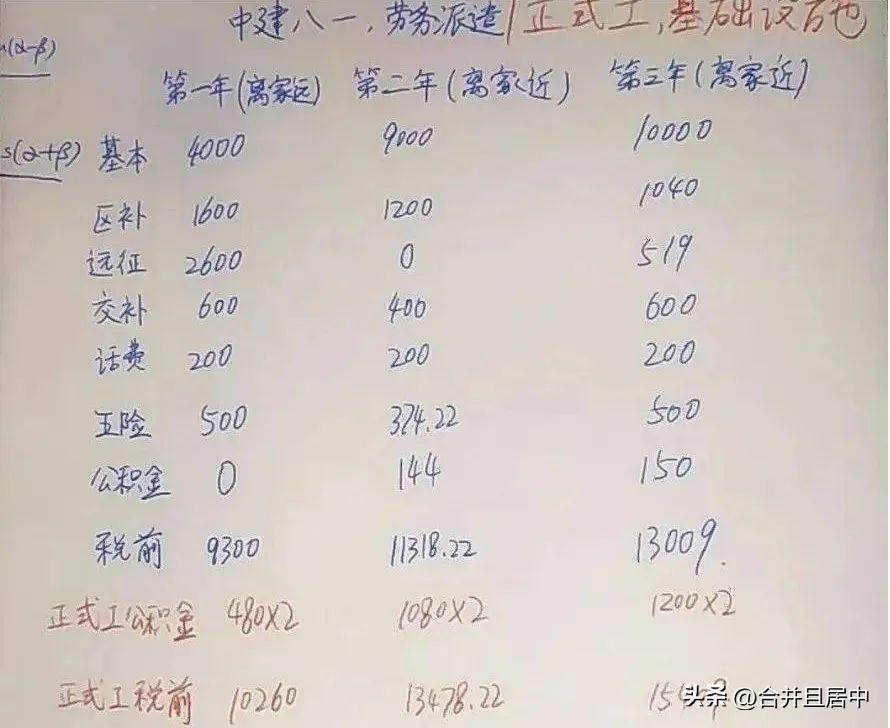 中建八一,劳务派遣/正式工,基础设施也
(α-β)
第一年(离家远) 第二年(离家近) 第三年(离家近)
s(α+β) 基本 4000 9000 10000
区补 1600 1200 1040
远征 2600 0 519
交补 600 400 600
话费 200 200 200
五险 500 374.22 500
公积金 0 144 150
税前 9300 11318.22 13009.
正式工公积金 480×2 1080×2 1200×2
正式工税前 10260 13478.22 15
头条 @合井且居中